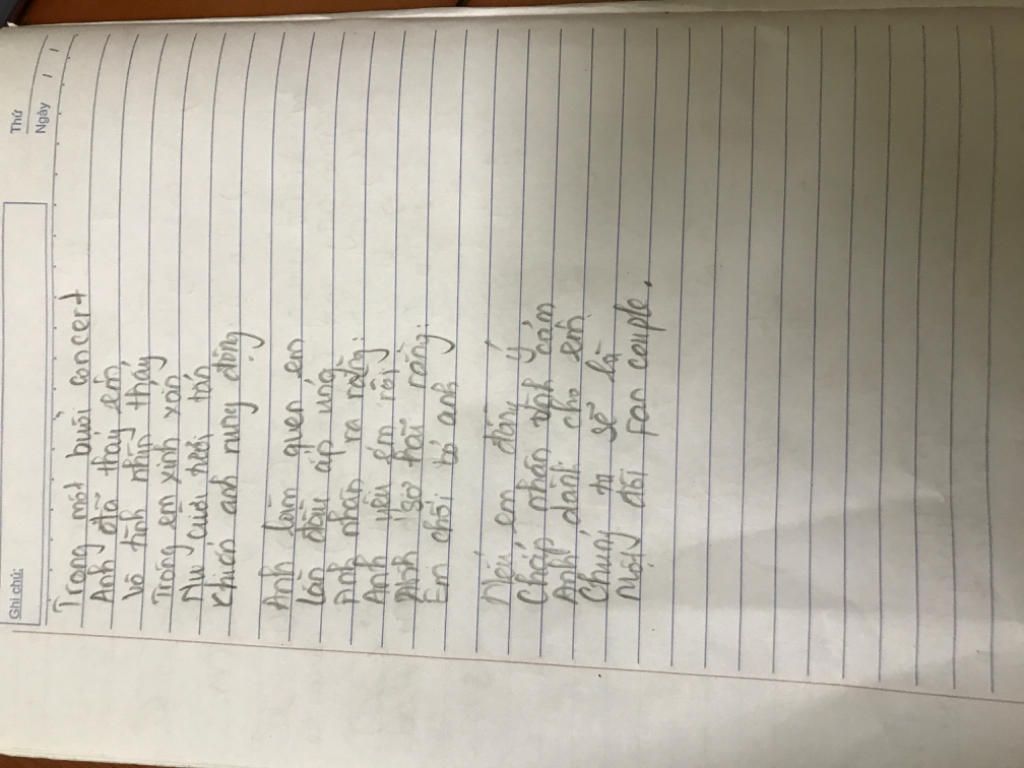 Ghi chú:
Thứ
Ngày
Trong một buổi concert
Anh đã thấy em
Vô tình nhìn thấy
Trông em xinh xắn
Nụ cười tươi tắn
Khiến anh rung động
Anh làm quen em
Lần đầu ấp úng
Anh nhận ra rằng:
Anh yêu em rồi
Anh sợ hãi rằng:
Em chối từ anh
Nếu em đồng ý
Chấp nhận tình cảm
Anh dành cho em
Chúng ta sẽ là
Một đôi Fan couple.